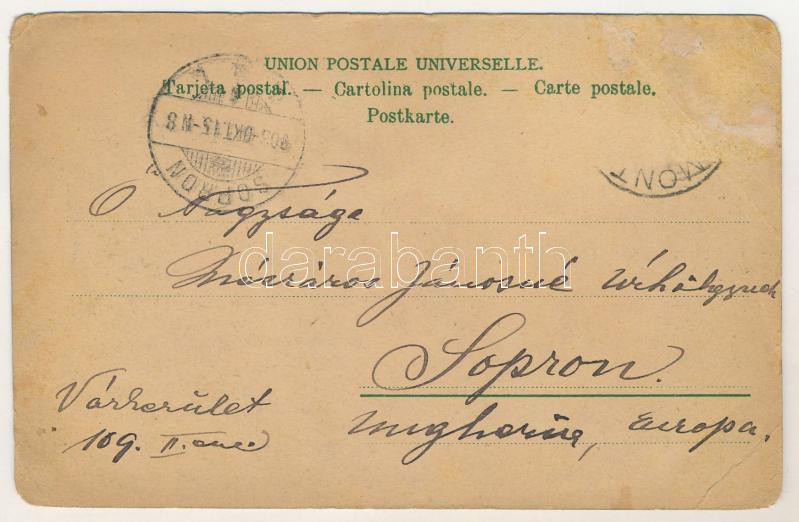 UNION POSTALE UNIVERSELLE.
Tarjeta postal. — Cartolina postale. — Carte postale.
Postkarte.
903 OKT. 15-N 8
SOPRON
MONT
Ő Nagysága
darabanth
Jánosné úrhölgynek
Sopron.
Várkerület
109. II. em.
Ungheria, Európa.